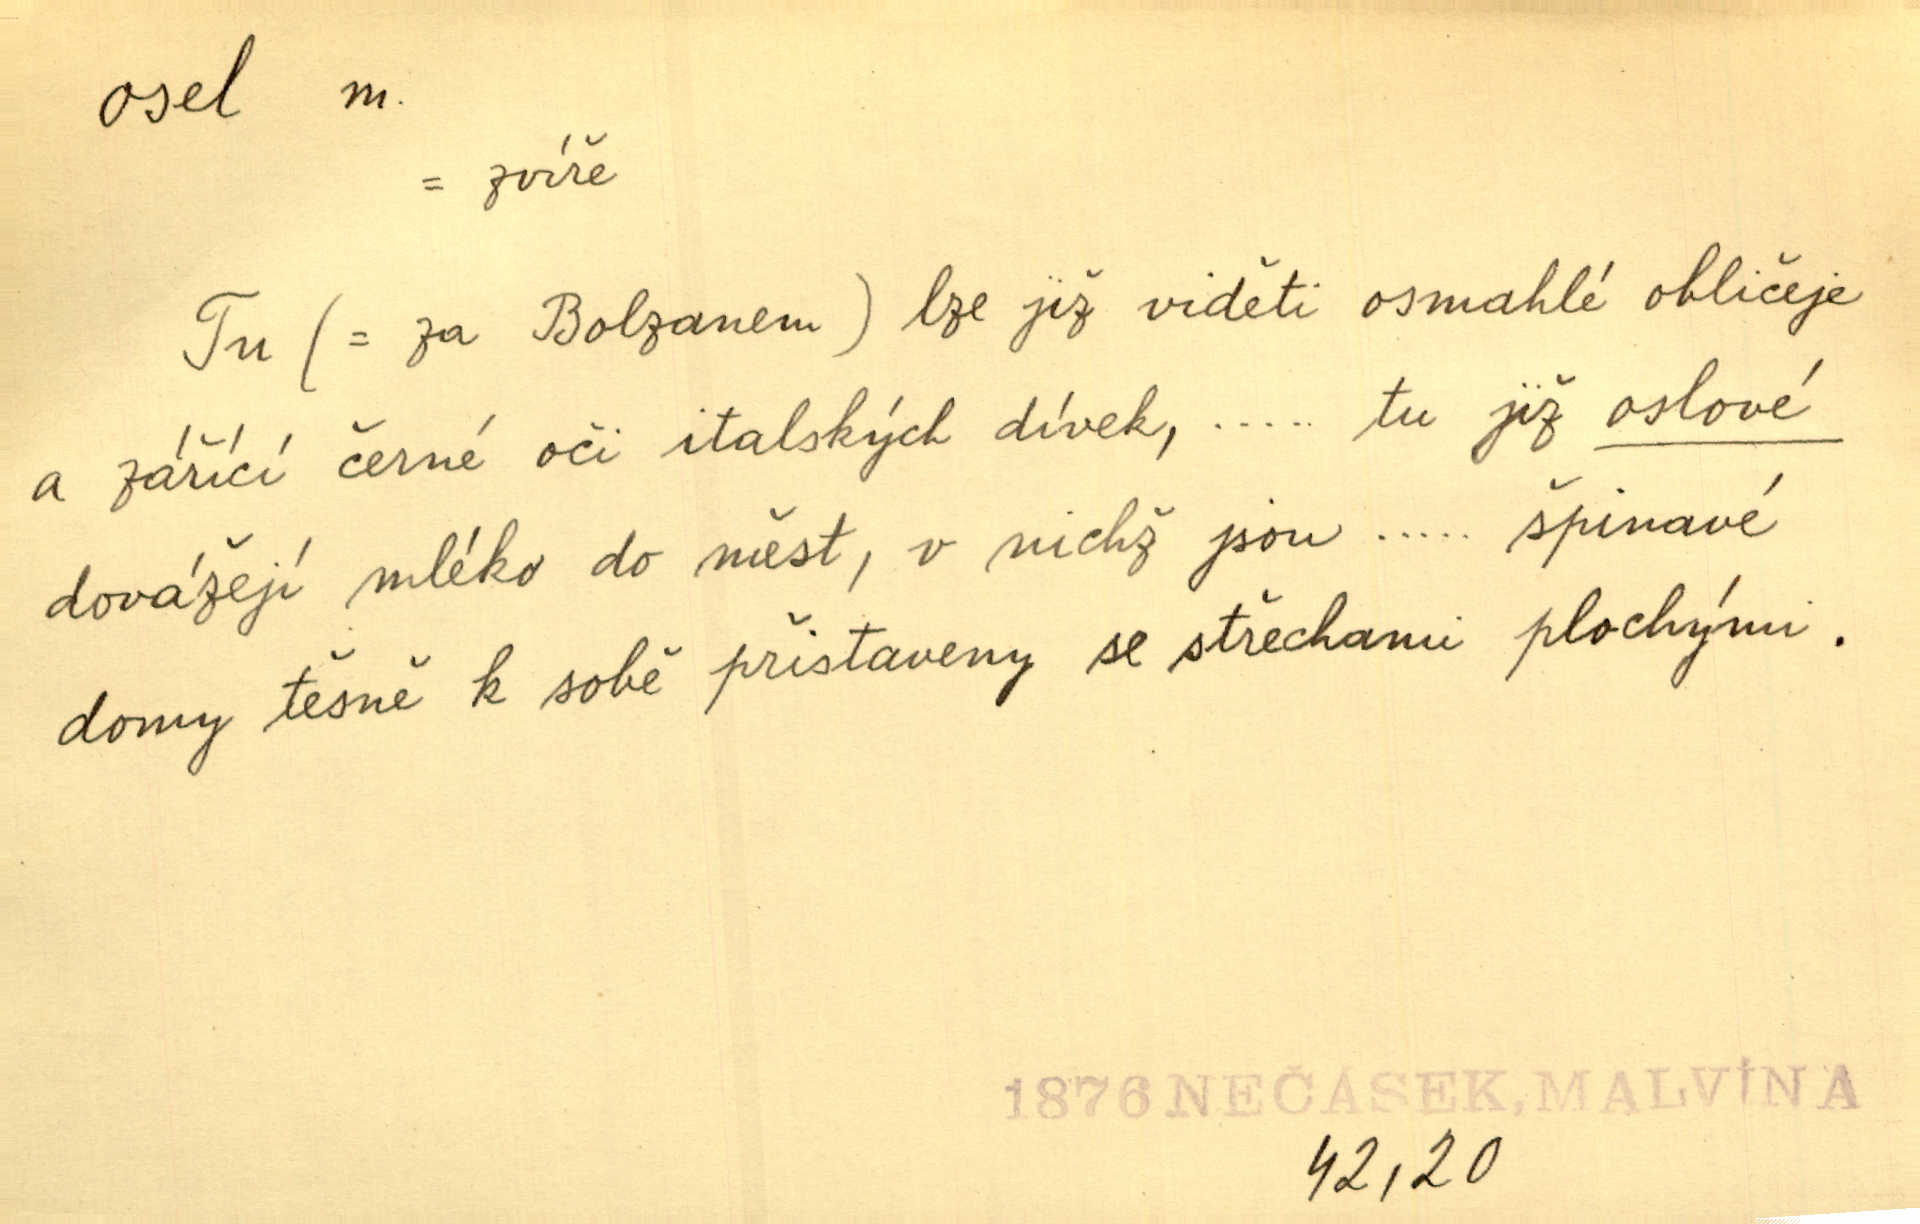 osel m.
= zvíře
Tu (= za Bolzanem) lze již viděti osmahlé obličeje
a zářící černé oči italských dívek, ..... tu již oslové
dovážejí mléko do měst, v nichž jsou ..... špinavé
domy těšně k sobě přistaveny se střechami plochými.
1876 NEČASEK, MALVÍNA
42,20